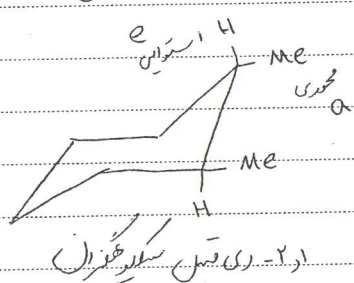 H
e استوایی
Me
محوری
a
Me
H
۱و۲- دی متیل سیکلوهگزان